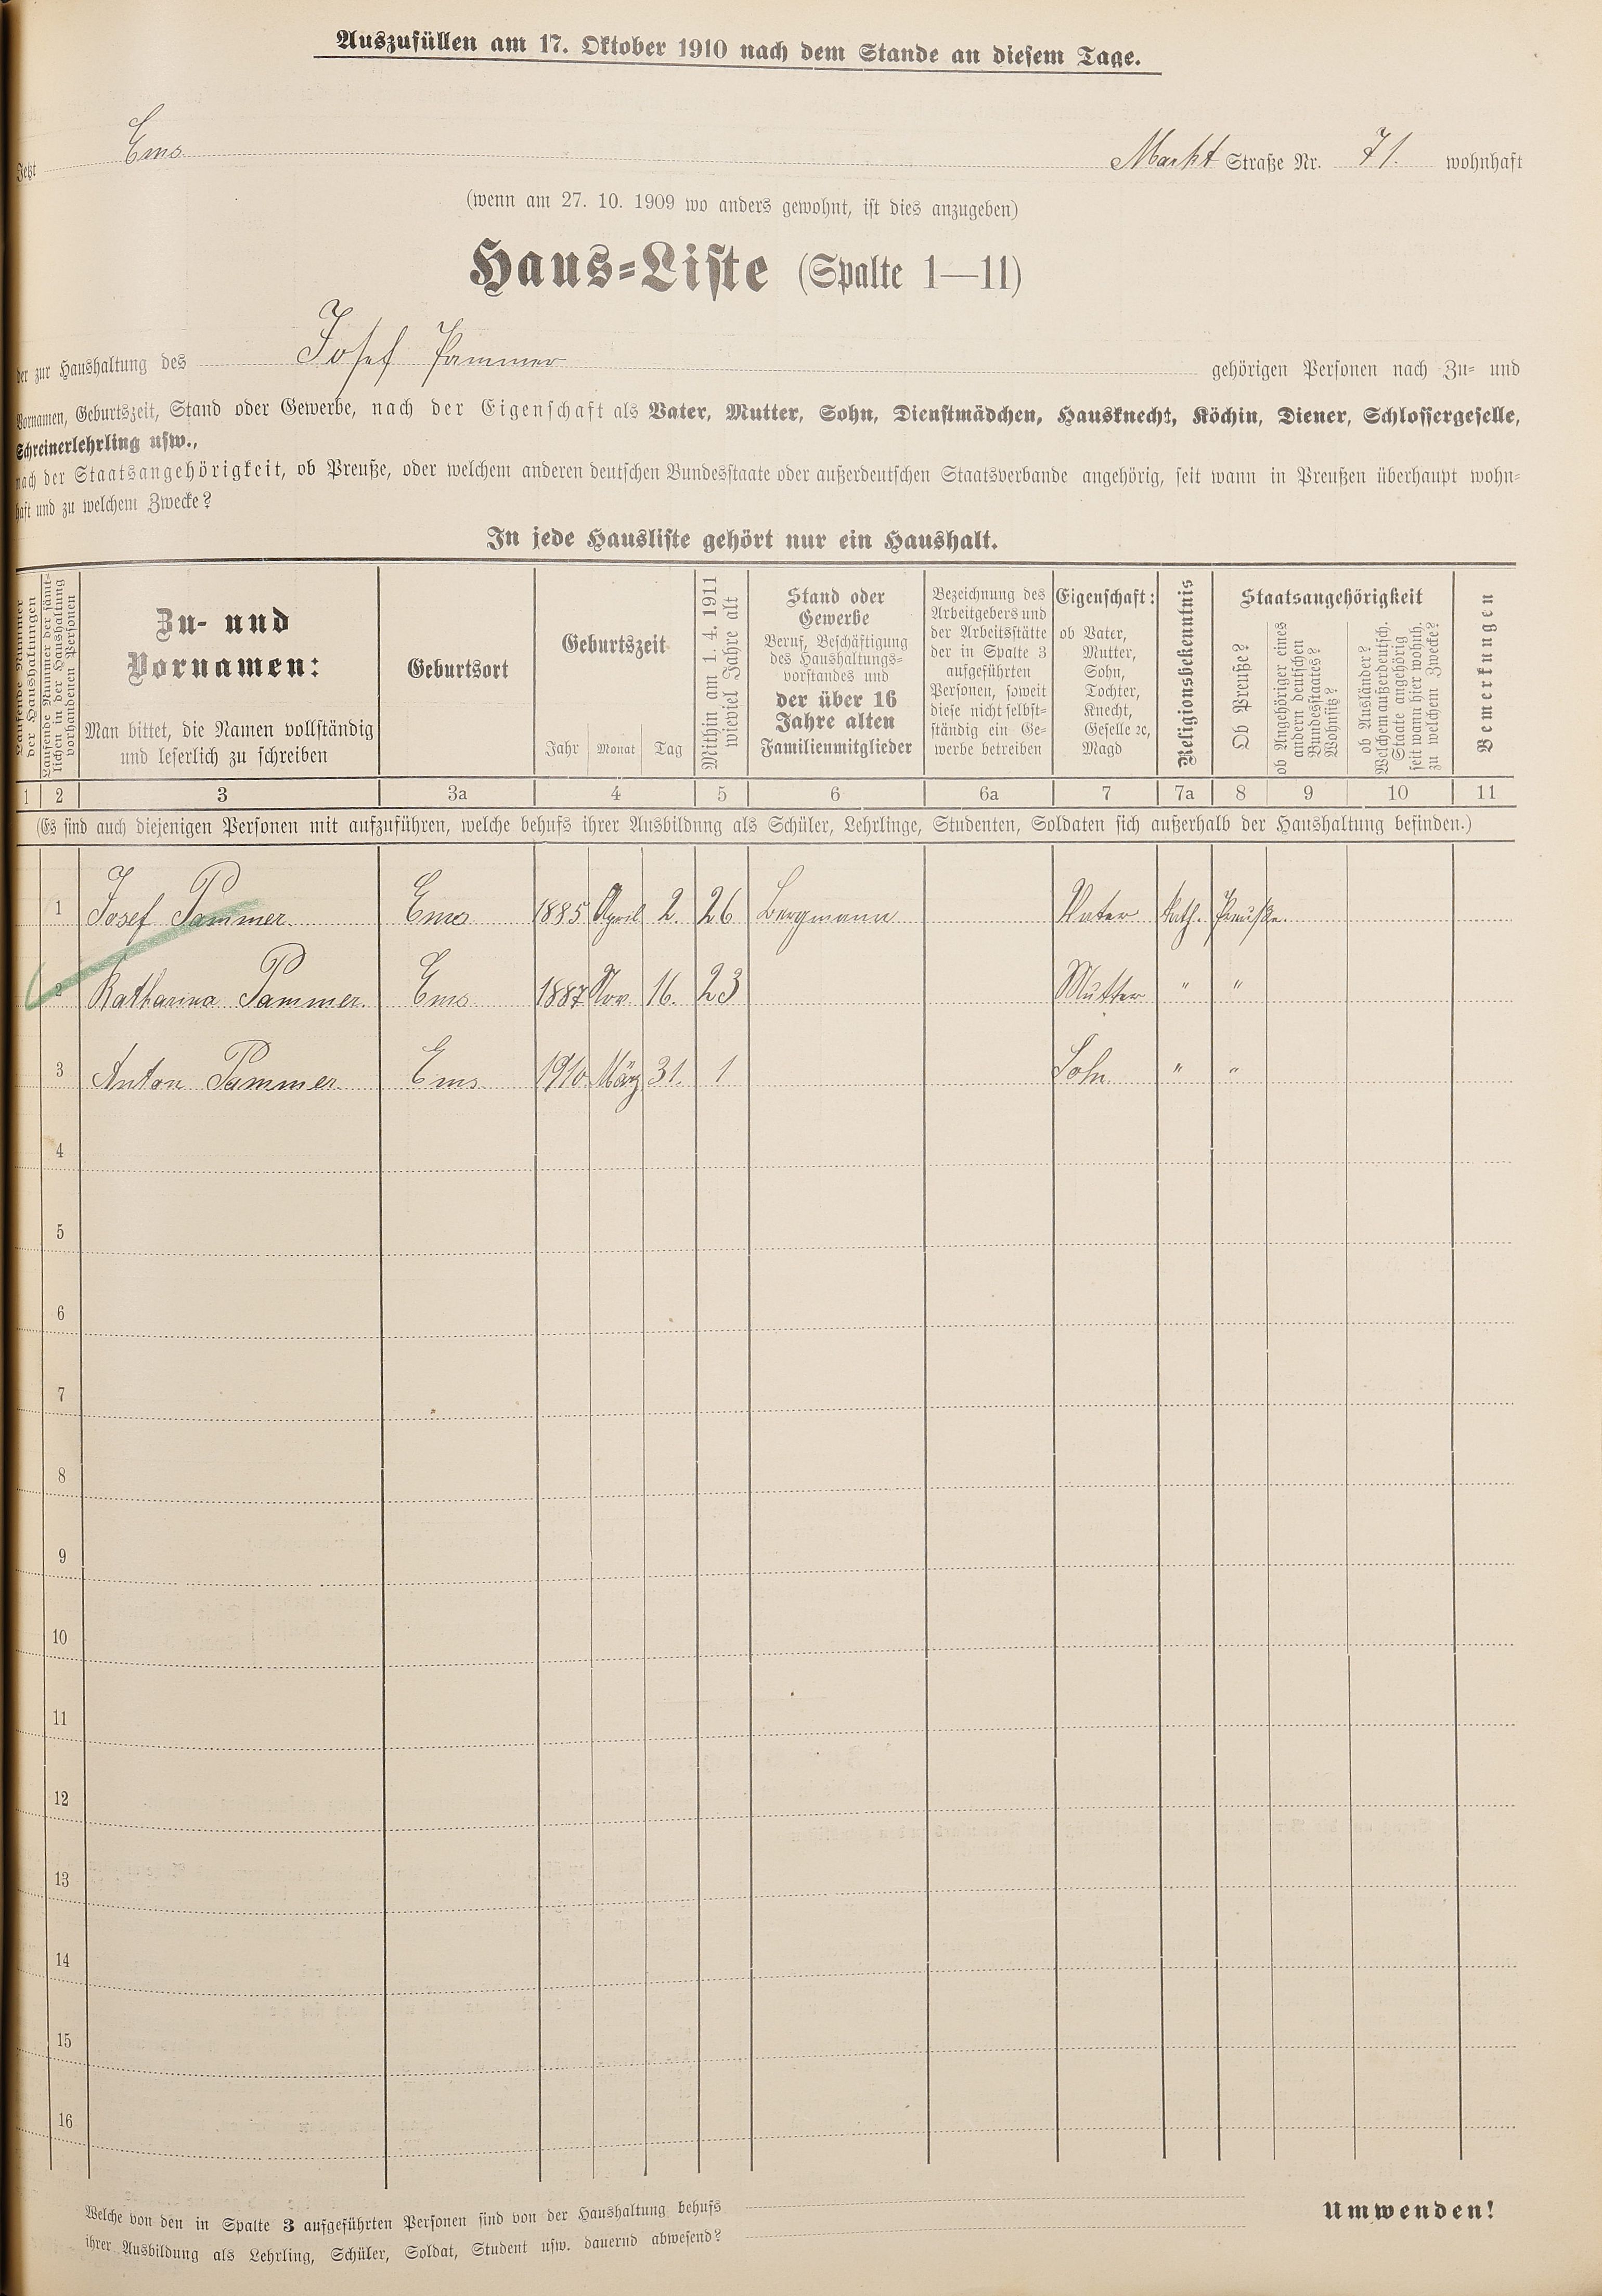 Auszufüllen am 17. Oktober 1910 nach dem Stande an diesem Tage.
Jetzt Ems Markt Straße Nr. 71. wohnhaft
(wenn am 27. 10. 1909 wo anders gewohnt, ist dies anzugeben)
Haus-Liste (Spalte 1—11)
der zur Haushaltung des Josef Pammer gehörigen Personen nach Zu- und
Vornamen, Geburtszeit, Stand oder Gewerbe, nach der Eigenschaft als Vater, Mutter, Sohn, Dienstmädchen, Hausknecht, Köchin, Diener, Schlossergeselle,
Schreinerlehrling usw.,
nach der Staatsangehörigkeit, ob Preuße, oder welchem anderen deutschen Bundesstaate oder außerdeutschen Staatsverbande angehörig, seit wann in Preußen überhaupt wohn-
haft und zu welchem Zwecke?
In jede Hausliste gehört nur ein Haushalt.
Laufende Nummer
der Haushaltungen
Laufende Nummer der sämt-
lichen in der Haushaltung
vorhandenen Personen
Zu- und
Vornamen:
Man bittet, die Namen vollständig
und leserlich zu schreiben
Geburtsort
Geburtszeit
Jahr Monat Tag
Mithin am 1. 4. 1911
wieviel Jahre alt
Stand oder
Gewerbe
Beruf, Beschäftigung
des Haushaltungs-
vorstandes und
der über 16
Jahre alten
Familienmitglieder
Bezeichnung des
Arbeitgebers und
der Arbeitsstätte
der in Spalte 3
aufgeführten
Personen, soweit
diese nicht selbst-
ständig ein Ge-
werbe betreiben
Eigenschaft:
ob Vater,
Mutter,
Sohn,
Tochter,
Knecht,
Geselle ꝛc,
Magd
Religionsbekenntnis
Staatsangehörigkeit
Ob Preuße?
ob Angehöriger eines
andern deutschen
Bundesstaates?
Wohnsitz?
ob Ausländer?
Welchem außerdeutsch.
Staate angehörig
seit wann hier wohnh.
zu welchem Zwecke?
Bemerkungen
1 2 3 3a 4 5 6 6a 7 7a 8 9 10 11
(Es sind auch diejenigen Personen mit aufzuführen, welche behufs ihrer Ausbildung als Schüler, Lehrlinge, Studenten, Soldaten sich außerhalb der Haushaltung befinden.)
1 Josef Pammer Ems 1885 April 2. 26 Bergmann Vater kath. Preuße.
2 Katharina Pammer. Ems 1887 Nov. 16. 23 Mutter " "
3 Anton Pammer Ems 1910 März 31. 1 Sohn " "
4
5
6
7
8
9
10
11
12
13
14
15
16
Welche von den in Spalte 3 aufgeführten Personen sind von der Haushaltung behufs
ihrer Ausbildung als Lehrling, Schüler, Soldat, Student usw. dauernd abwesend?
Umwenden!